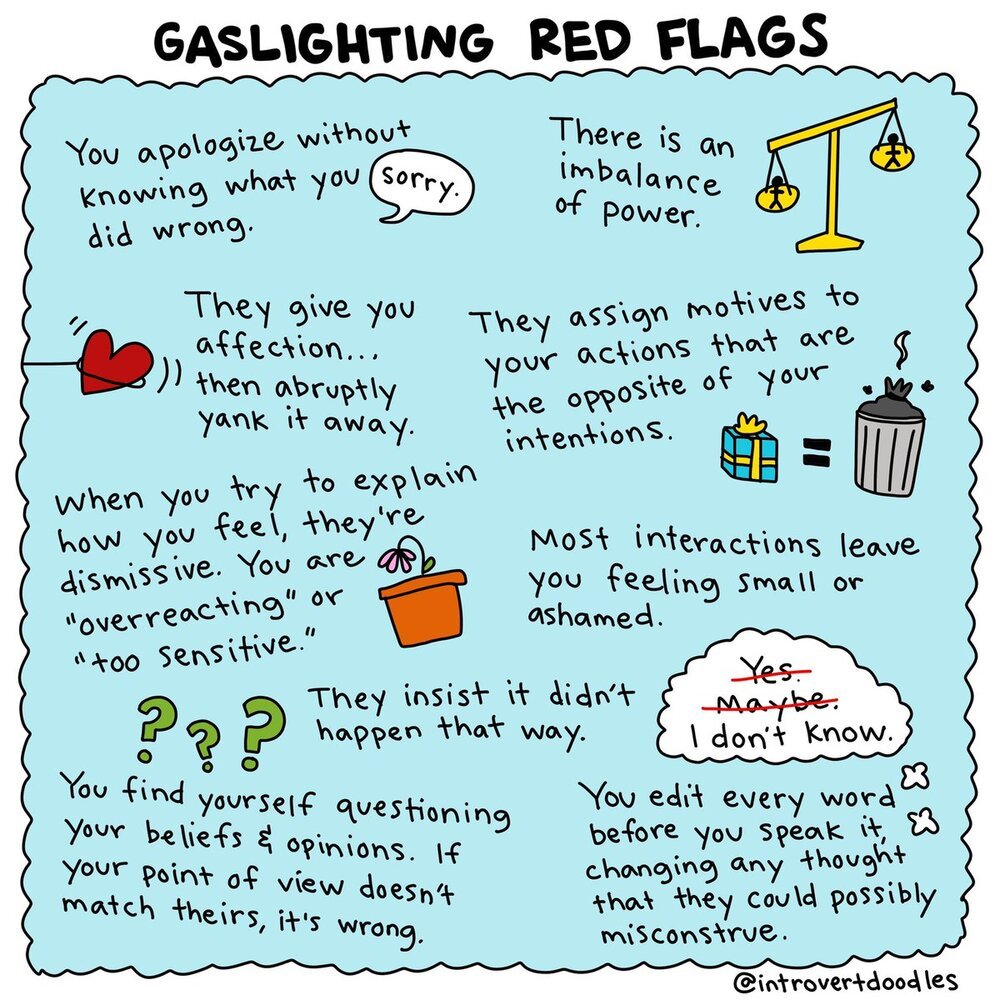 GASLIGHTING RED FLAGS
You apologize without
knowing what you
did wrong.
sorry.
There is an
imbalance
of power.
They give you
affection...
then abruptly
yank it away.
They assign motives to
your actions that are
the opposite of your
intentions.
=
When you try to explain
how you feel, they're
dismissive. You are
"overreacting" or
"too sensitive."
Most interactions leave
you feeling small or
ashamed.
They insist it didn't
happen that way.
Yes.
Maybe.
I don't know.
? ? ?
You find yourself questioning
your beliefs & opinions. If
your point of view doesn't
match theirs, it's wrong.
You edit every word
before you speak it,
changing any thought
that they could possibly
misconstrue.
@introvertdoodles